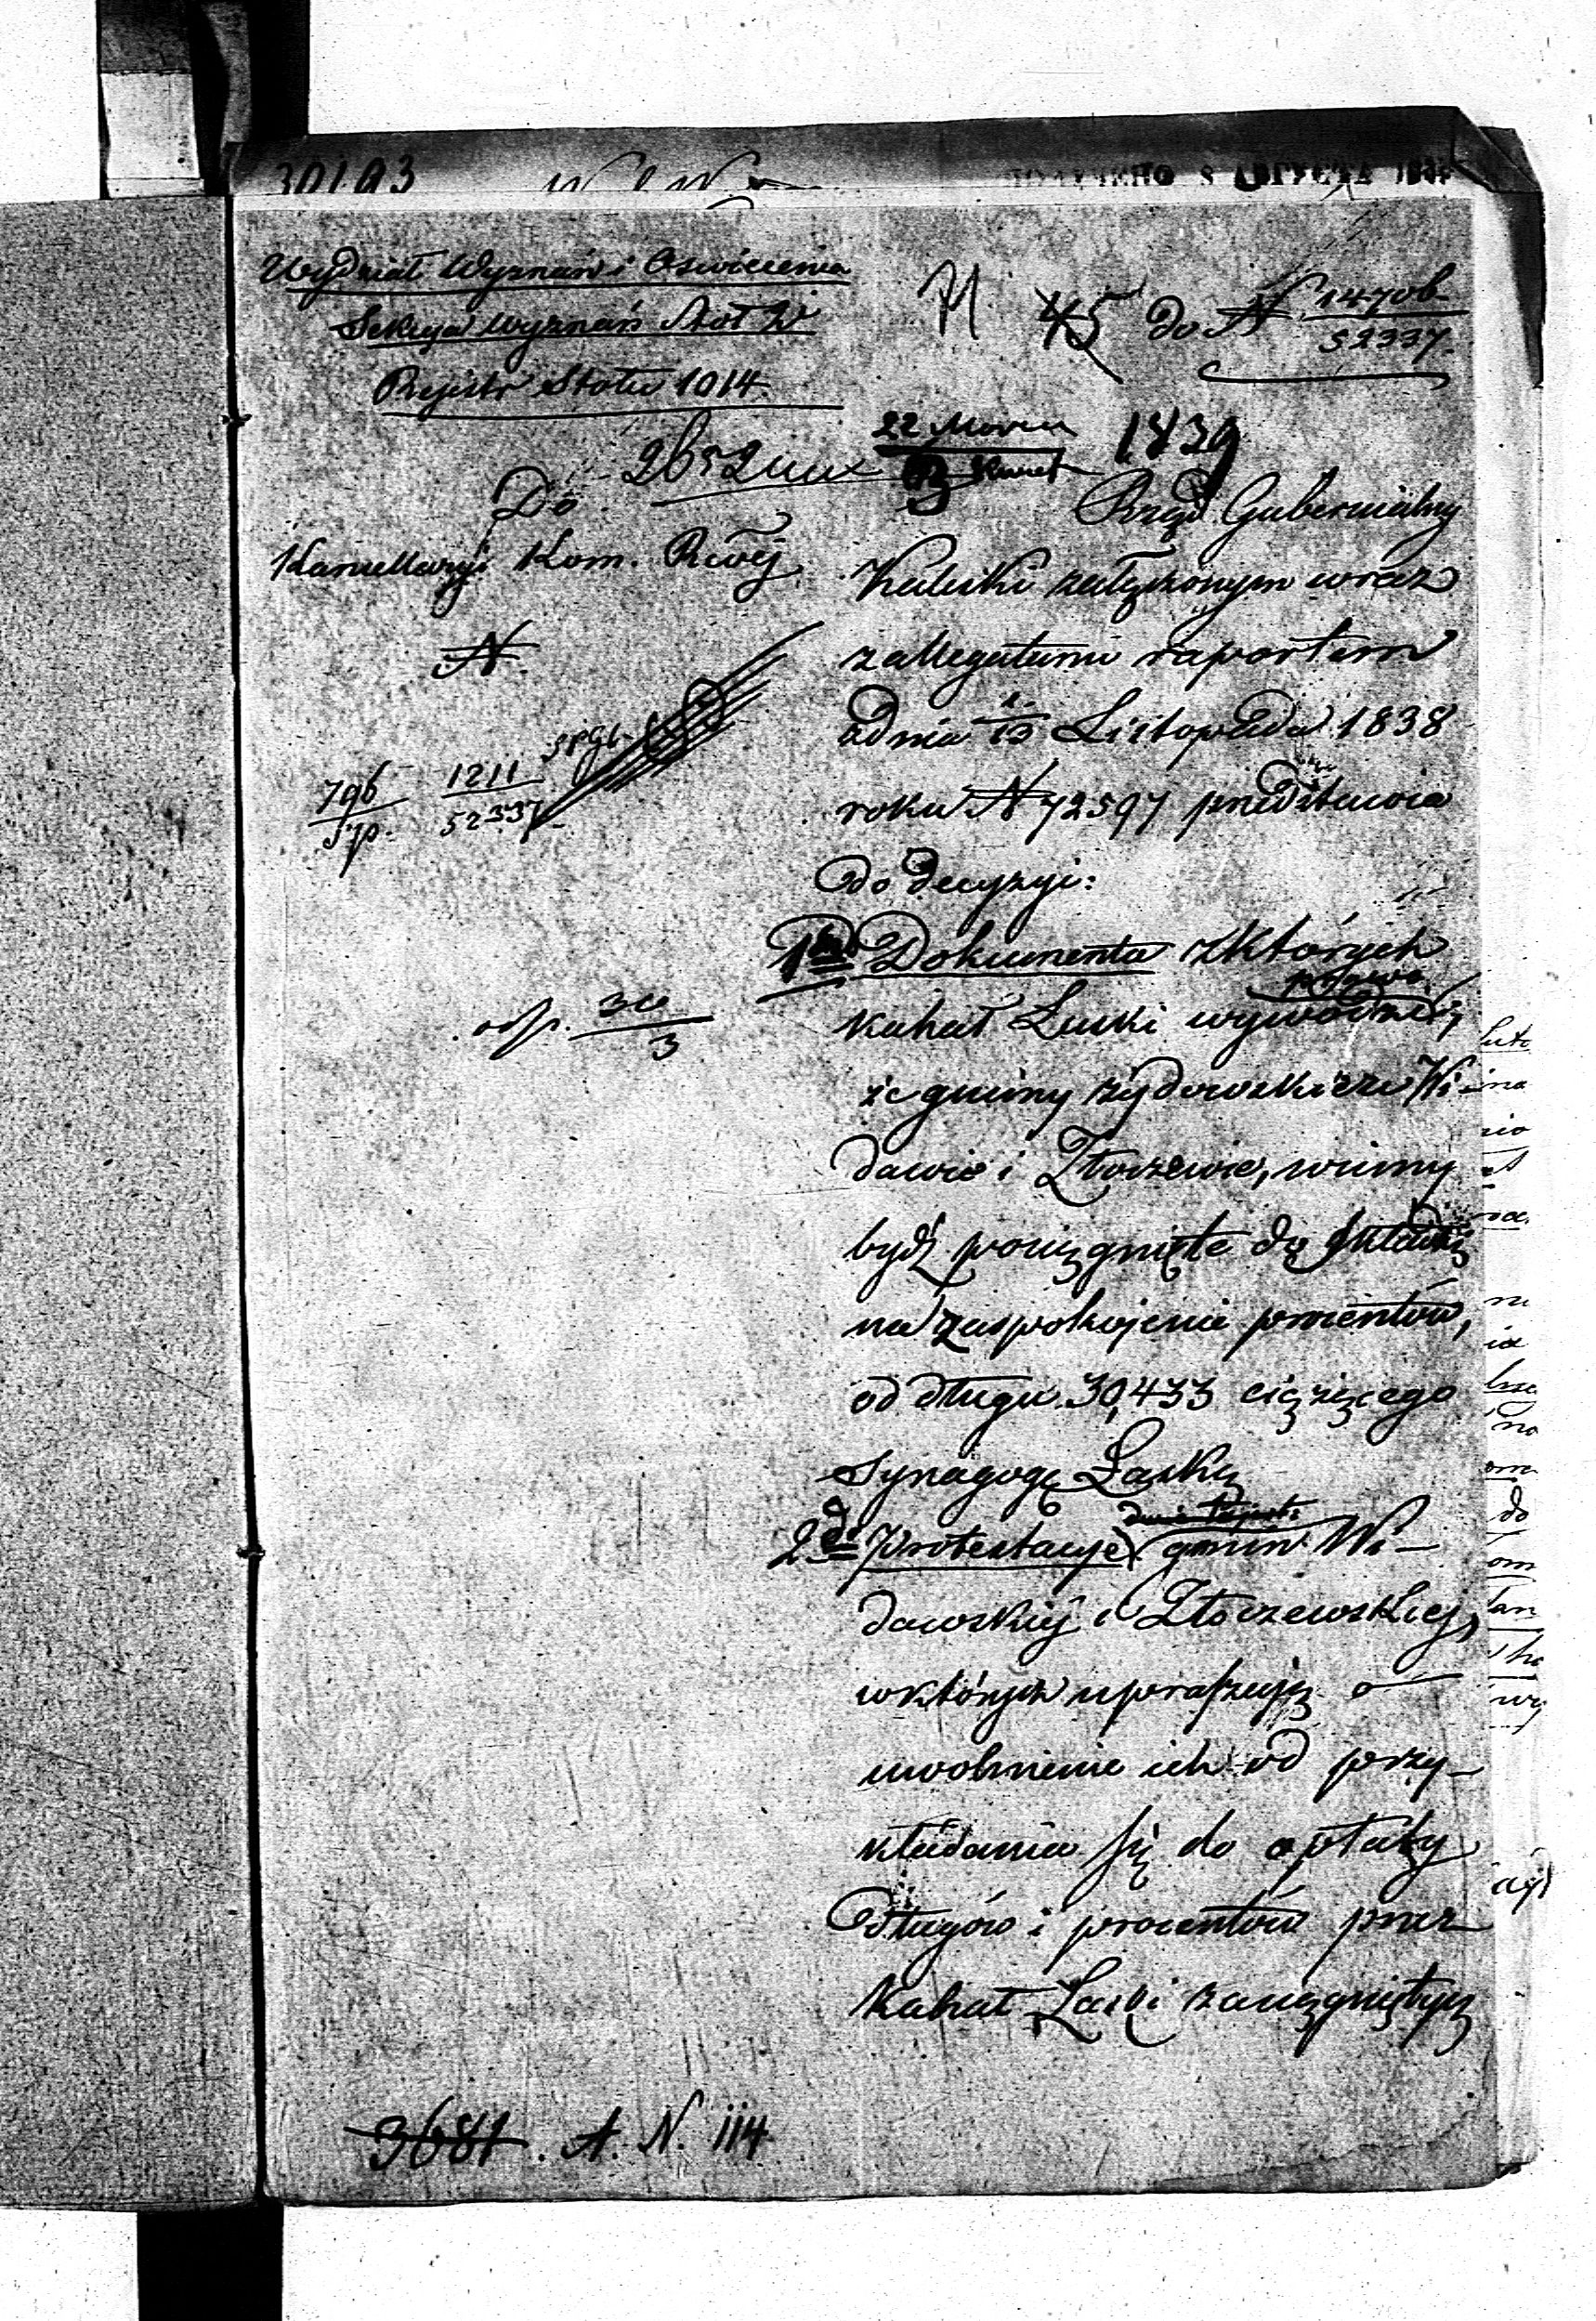 30193
8 АВГУСТА
Wydział Wyznań i Oświecenia
Sekcya Wyznań Stół W
Rejestr Stołu 1014
45 do N 14706
52337.
22 Marca 1839
3 Kwiet
Do
Kancellaryi Kom. Rwéj
N.
796 1211
52337
odp. 30
3
Rząd Gubernialny
Kaliski załączonym wraz
z allegatami raportem
z dnia 1/13 Listopada 1838
roku N 72597 przedstawia
do decyzyi:
1mo Dokumenta z których
kahał Łaski wywodzi
że gminy żydowskie w Wi-
dawie i Złoczewie, winny
bydź pociągnięte do składki
na zaspokojenie procentów,
od długu 30,433 ciążącego
synagogę Łaską
2do Protestacye gmin Wi-
dawskiéj i Złoczewskiej,
w których upraszają o
uwolnienie ich od przy-
kładania się do opłaty
długów i procentów przez
Kahał Łaski zaciągniętych
3681. A. N. 114